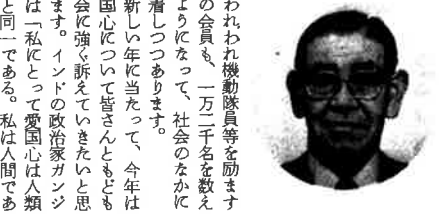 われわれ機動隊員等を励ます
の会員も、一万二千名を数え
ようになって、社会のなかに
着しつつあります。
新しい年に当たって、今年は
国心について皆さんともども
会に強く訴えていきたいと思
ます。インドの政治家ガンジ
は「私にとって愛国心は人類
と同一である。私は人間であ